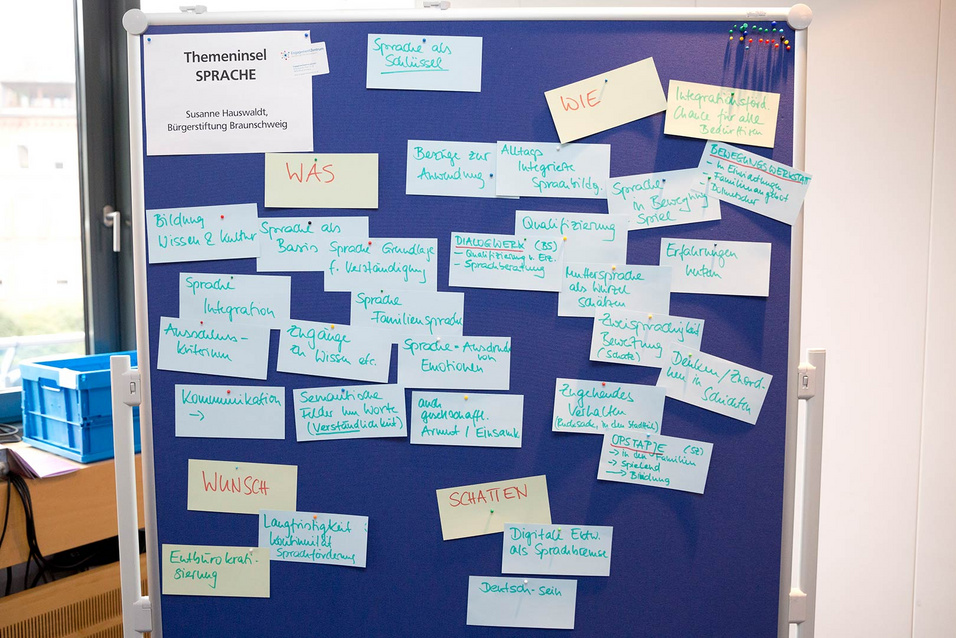 Themeninsel
SPRACHE
Susanne Hauswaldt,
Bürgerstiftung Braunschweig
Sprache als
Schlüssel
WAS
Bildung
Wissen & Kultur
Sprache als
Basis
Sprache Grundlage
f. Verständigung
Sprache
Integration
Sprache
Familiensprache
Ausschluss-
kriterium
Zugänge
zu Wissen etc.
Sprache = Ausdruck
von
Emotionen
Kommunikation
→
Semantische
Felder um Worte
(Verständlichkeit)
auch
gesellschaftl.
Armut / Einsamk.
WIE
Integrationsförd.
Chance für alle
Bedürftigen
Bezüge zur
Anwendung
Alltags
Integrierte
Sprachbildg.
Sprache
in Bewegung
Spiel
BEWEGUNGSWERKSTATT
- in Einrichtungen
- Familienangebot
Dolmetscher
Qualifizierung
DIALOGWERK (BS)
- Qualifizierung v. Erz.
- Sprachberatung
Erfahrungen
nutzen
Muttersprache
als Wurzel
Schätzen
Zweisprachigkeit
Bewertung
(Schatz)
Denken/Zuord-
nen in Schichten
Zugehendes
Verhalten
in den Stadtteil)
OPSTAPJE (SZ)
→ in den Familien
→ Spielend
→ Bindung
WUNSCH
Langfristigkeit
Kontinuität
Sprachförderung
Entbürokrati-
sierung
SCHATTEN
Digitale Entw.
als Sprachbremse
Deutsch-sein